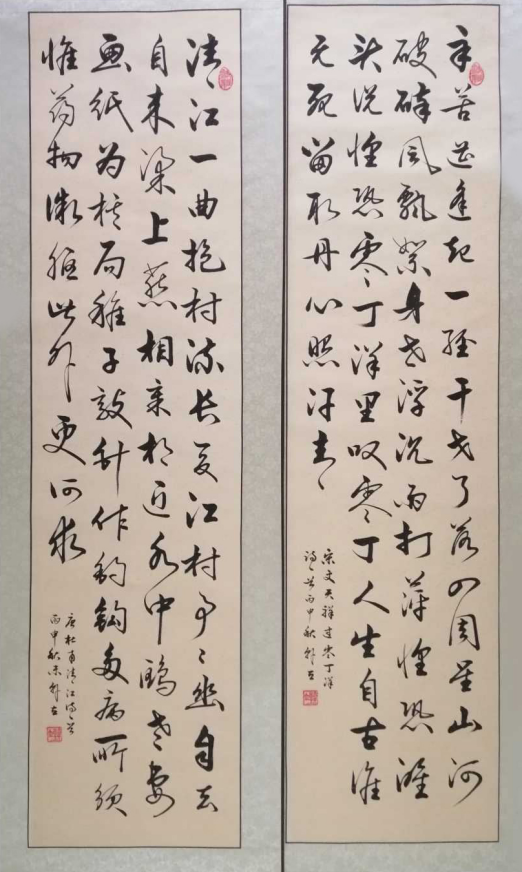 辛苦遭逢起一经干戈了落四周星山河
破碎风飘絮身世浮沉雨打萍惶恐滩
头说惶恐零丁洋里叹零丁人生自古谁
无死留取丹心照汗青
宋文天祥过零丁洋
诗一首丙申秋
清江一曲抱村流长夏江村事事幽自去
自来梁上燕相亲相近水中鸥老妻
画纸为棋局稚子敲针作钓钩多病所须
惟药物微躯此外更何求
唐杜甫清江诗一首
丙申秋